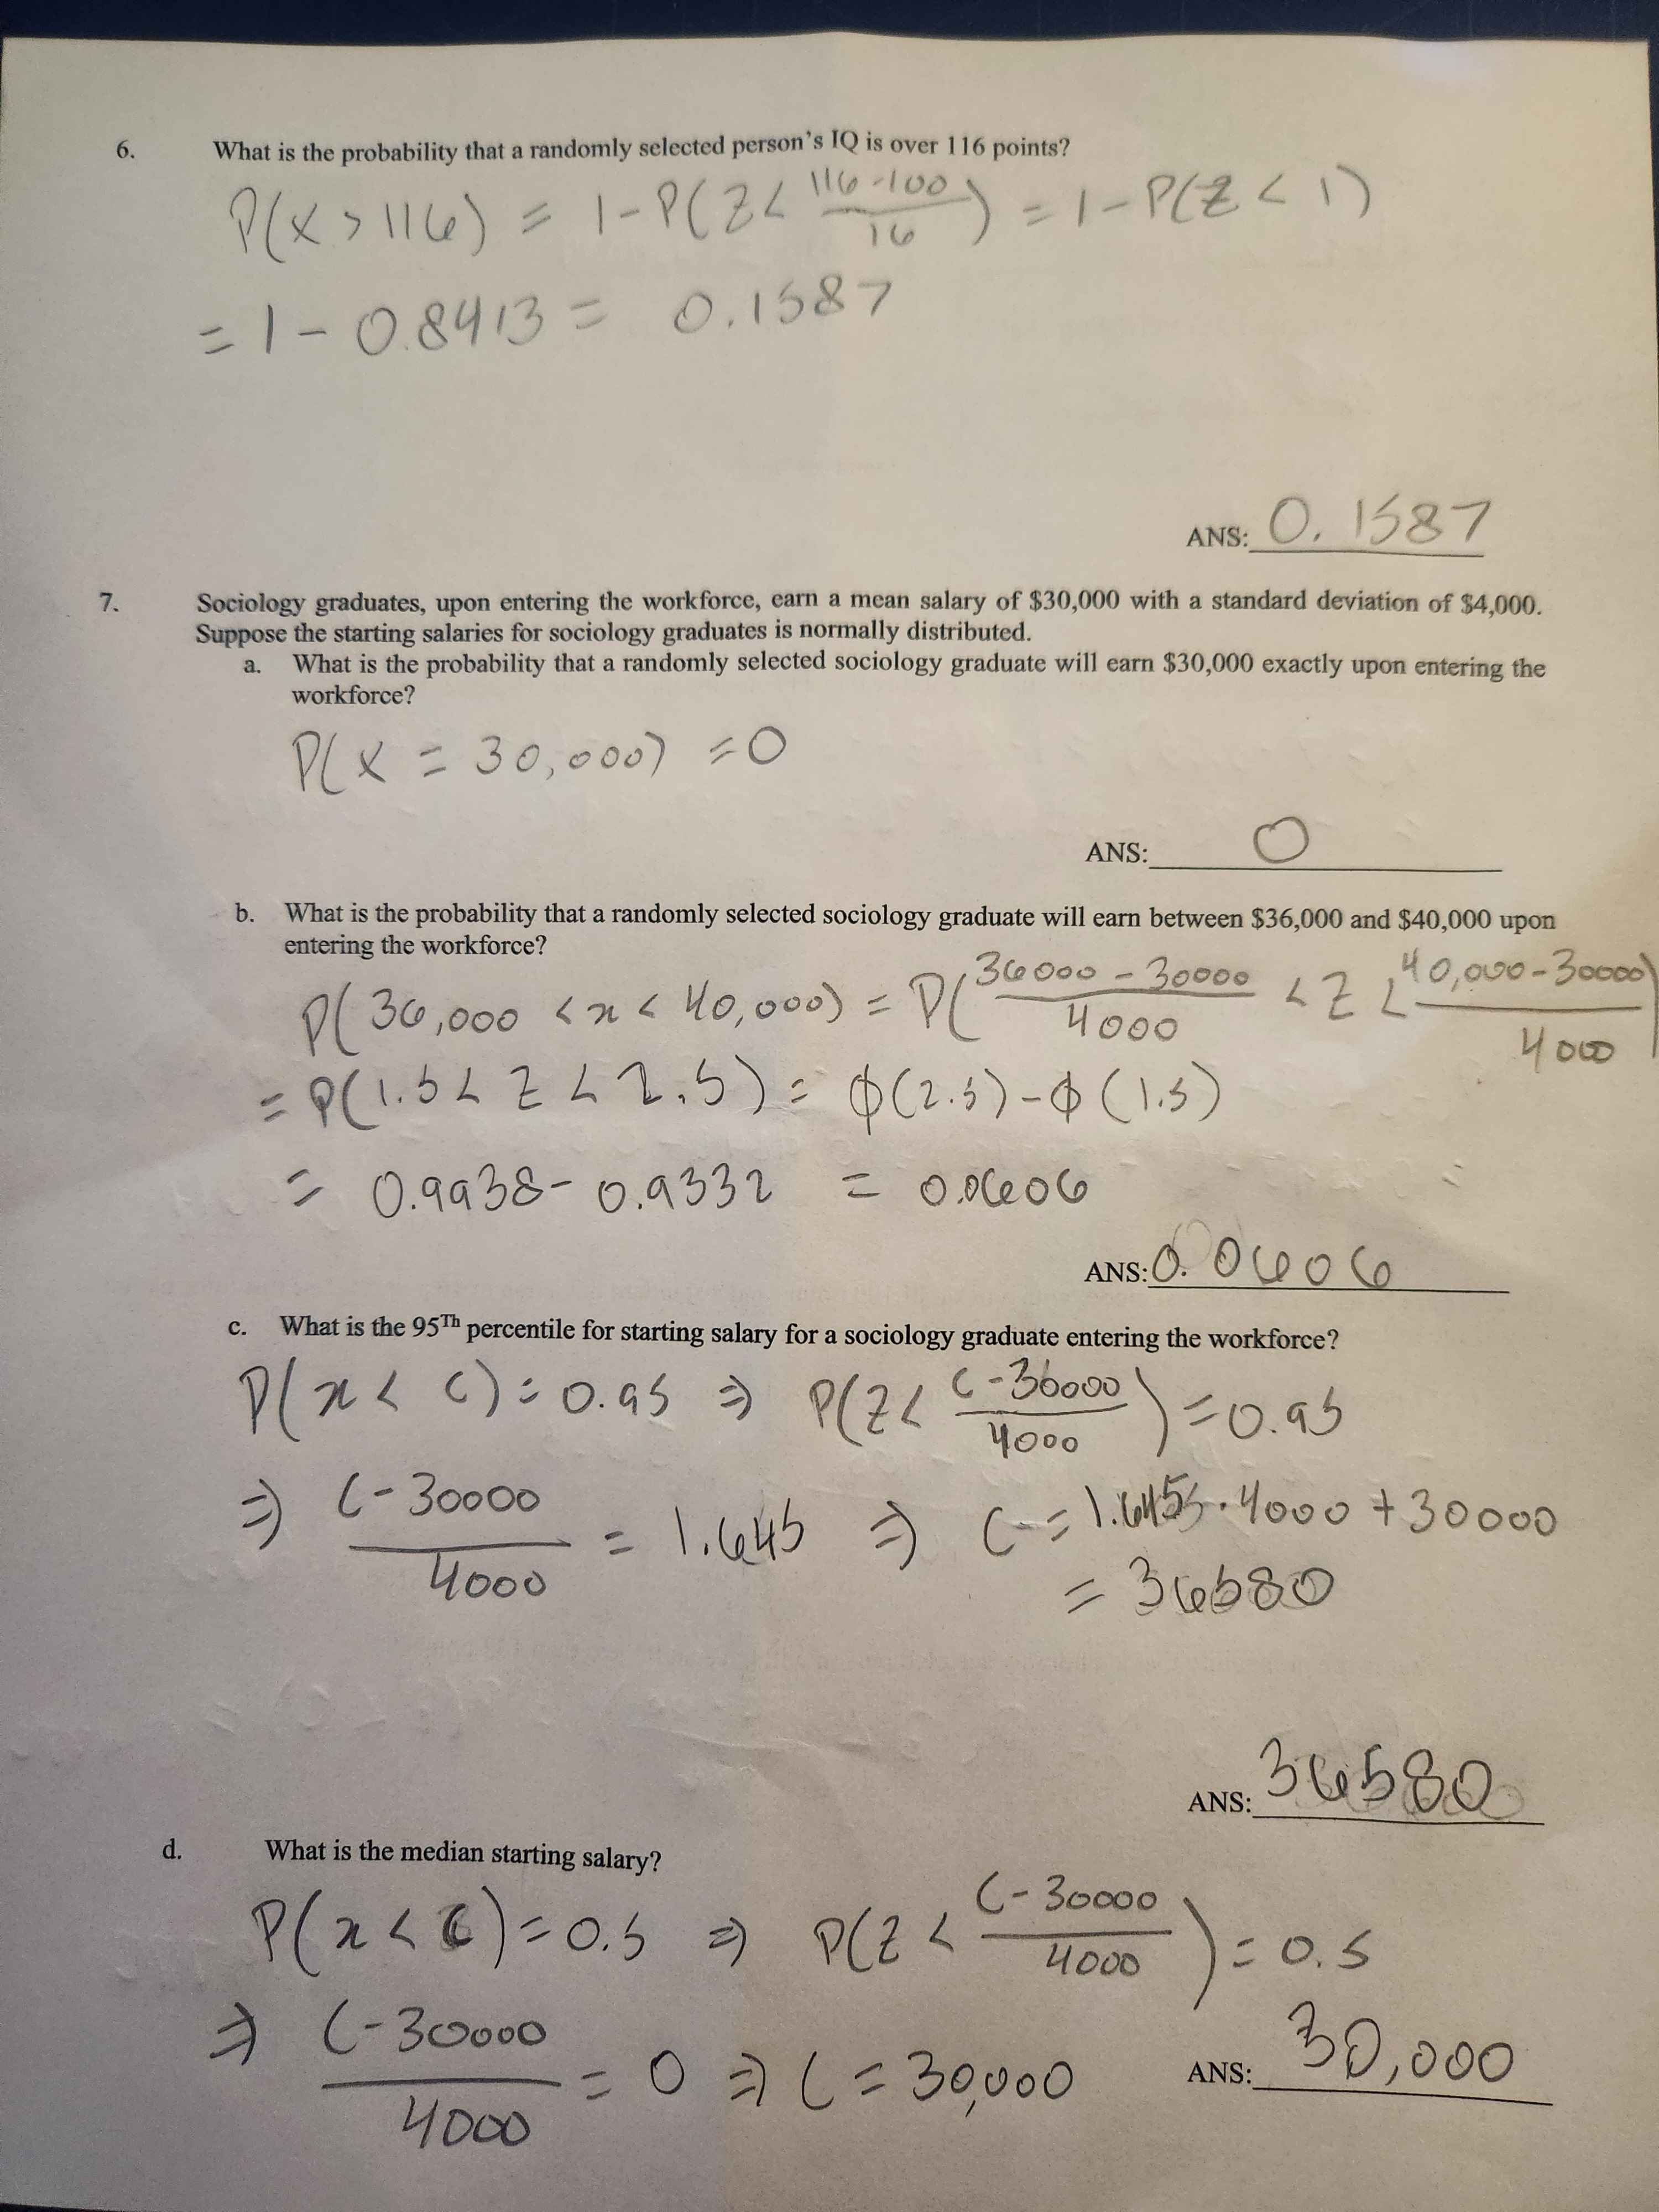 6. What is the probability that a randomly selected person's IQ is over 116 points?
P(X > 116) = 1 - P(Z < (116-100)/16) = 1 - P(Z < 1)
= 1 - 0.8413 = 0.1587
ANS: 0.1587
7. Sociology graduates, upon entering the workforce, earn a mean salary of $30,000 with a standard deviation of $4,000.
Suppose the starting salaries for sociology graduates is normally distributed.
a. What is the probability that a randomly selected sociology graduate will earn $30,000 exactly upon entering the
workforce?
P(X = 30,000) = 0
ANS: 0
b. What is the probability that a randomly selected sociology graduate will earn between $36,000 and $40,000 upon
entering the workforce?
P(36,000 < x < 40,000) = P((36000 - 30000)/4000 < Z < (40,000 - 30000)/4000)
= P(1.5 < Z < 2.5) = ϕ(2.5) - ϕ(1.5)
= 0.9938 - 0.9332 = 0.0606
ANS: 0.0606
c. What is the 95Th percentile for starting salary for a sociology graduate entering the workforce?
P(x < C) = 0.95 ⇒ P(Z < (C - 30000)/4000) = 0.95
⇒ (C - 30000)/4000 = 1.645 ⇒ C = 1.645 · 4000 + 30000
= 36580
ANS: 36580
d. What is the median starting salary?
P(x < C) = 0.5 ⇒ P(Z < (C - 30000)/4000) = 0.5
⇒ (C - 30000)/4000 = 0 ⇒ C = 30,000
ANS: 30,000